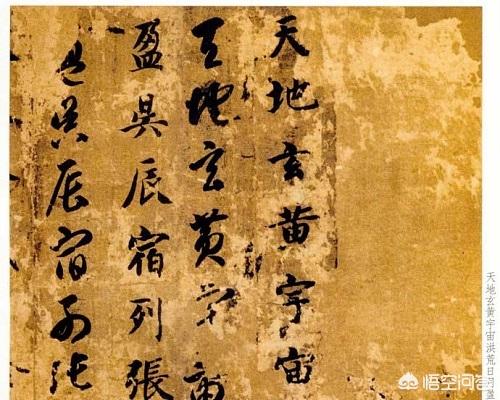 天地玄黄宇宙
天地玄黄宇宙
盈昃辰宿列張
盈昃辰宿列張
天地玄黄宇宙洪荒日月盈
悟空问答